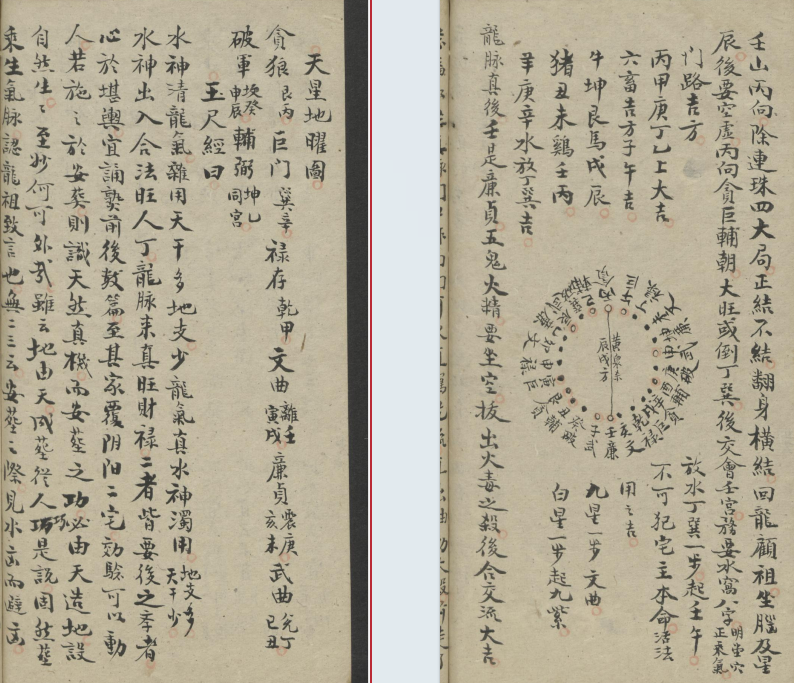 壬山丙向除連珠四大局正結不結翻身橫結回龍顧祖坐腦及星
辰後要空虛丙向貪巨輔朝大旺或倒丁巽後交會壬宮務要水窩八字明堂穴正乘氣
門路吉方
丙甲庚丁乙上大吉
六畜吉方子午吉
牛坤艮馬戌辰
猪丑未鷄壬丙
羊庚辛水放丁巽吉
放水丁巽一步起壬午
不可犯宅主本命活法
用之吉
九星一步文曲
白星一步起九紫
辰戌方
龍脉真後壬是廉貞五鬼火精要坐空拔出火毒之殺後合交流大吉
天星地曜圖
貪狼艮丙巨門巽辛禄存乾甲文曲離壬寅戌廉貞震庚亥未武曲兌丁巳丑
破軍坎癸申辰輔弼坤乙同宮
玉尺經曰
水神清龍氣雜用天干多地支少龍氣真水神濁用地支多天干少
水神出入合法旺人丁龍脉来真旺財禄二者皆要後之季者
心於堪輿宜誦熟前後数篇至其家覆阴阳二宅効驗可以動
人若施之於安葬則識天然真機而安葬之功必由天造地設
自然生生至妙何可外哉雖云地由天成葬從人巧是説固然葬
乘生氣脉認龍祖致言也無二三云安葬之際見水吉而避凶